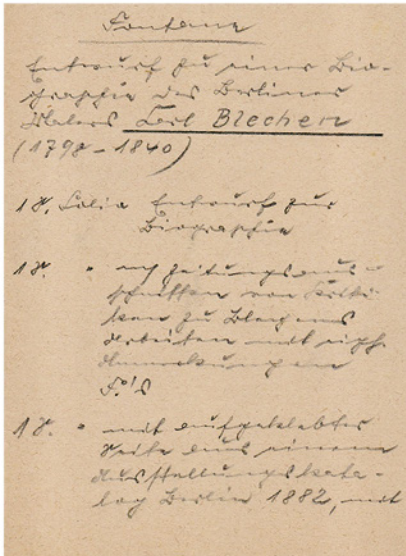 Fontane
Entwurf zu einer Bio-
graphie des Berliner
Malers Carl Blechen
(1798-1840)
18. Folio Entwurf zur
Biographie
18. " mit Zeitungsaus-
schnitten von Kriti-
ken zu Blechens
Arbeiten mit
Anmerkungen
F.'s
18. " mit aufgeklebter
Seite aus einem
Ausstellungskata-
log Berlin 1882, mit